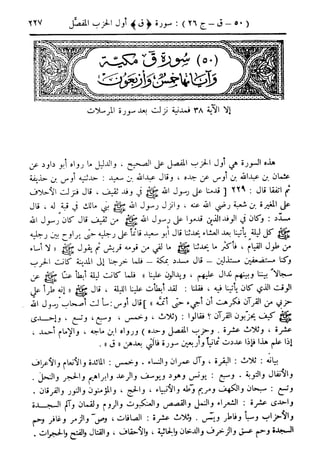 (٥٠ – ق – ج ٢٦) : سورة ﴿ق﴾ أول الحزب المفصَّل ٢٢٧
(٥٠) سورة ق مكية
وآياتها خمس وأربعون
إلا الآية ٣٨ فمدنية نزلت بعد سورة المرسلات
هذه السورة هي أول الحزب المفصل على الصحيح ، والدليل ما رواه أبو داود عن
عثمان بن عبدالله بن أوس عن جده ، وقال عبدالله بن سعيد : حدثنيه أوس بن حذيفة
ثم اتفقا قال : ٢٢٩ [ قدمنا على رسول الله ﷺ في وفد ثقيف ، قال فنزلت الأحلاف
على المغيرة بن شعبة رضي الله عنه ، وانزل رسول الله ﷺ بني مالك في قبة له ، قال
مسدّد : وكان في الوفد الذين قدموا على رسول الله ﷺ من ثقيف قال كان رسول الله
ﷺ كل ليلة يأتينا بعد العشاء يحدثنا قال أبو سعيد قائماً على رجليه حتى يراوح بين رجليه
من طول القيام ، فأكثر ما يحدثنا ﷺ ما لقي من قومه قريش ثم يقول ﷺ « لا أساء
وكنا مستضعفين مستذلين – قال مسدد بمكة – فلما خرجنا إلى المدينة كانت الحرب
سجالاً بيننا وبينهم ندال عليهم ، ويدالون علينا » فلما كانت ليلة أبطأ عنّا ﷺ عن
الوقت الذي كان يأتينا فيه ، فقلنا : لقد أبطأت علينا الليلة ، قال ﷺ « إنه طرأ علي
حزبي من القرآن فكرهت أن أجيء حتى أتمّه » ] قال أوس : سألت أصحاب رسول الله
ﷺ كيف يحزّبون القرآن ؟ فقالوا : (ثلاث ، وخمس ، وسبع ، وتسع ، وإحدى
عشرة ، وثلاث عشرة . وحزب المفصل وحده ) ورواه ابن ماجه ، والإمام أحمد ،
إذا علم هذا فإذا عددت ثمانياً وأربعين سورة فالتي بعدهن « ق » .
بيانه : ثلاث : البقرة ، وآل عمران والنساء . وخمس : المائدة والأنعام والأعراف
والأنفال والتوبة . وسبع : يونس وهود ويوسف والرعد وابراهيم والحجر والنحل .
وتسع : سبحان والكهف ومريم وطه والأنبياء ، والحج ، والمؤمنون والنور والفرقان .
واحدى عشرة : الشعراء والنمل والقصص والعنكبوت والروم ولقمان وآلم السجدة
والأحزاب وسبأ وفاطر ويس . وثلاث عشرة : الصافات ، وص والزمر وغافر وحم
السجدة وحم عسق والزخرف والدخان والجاثية ، والأحقاف ، والقتال والفتح والحجرات .